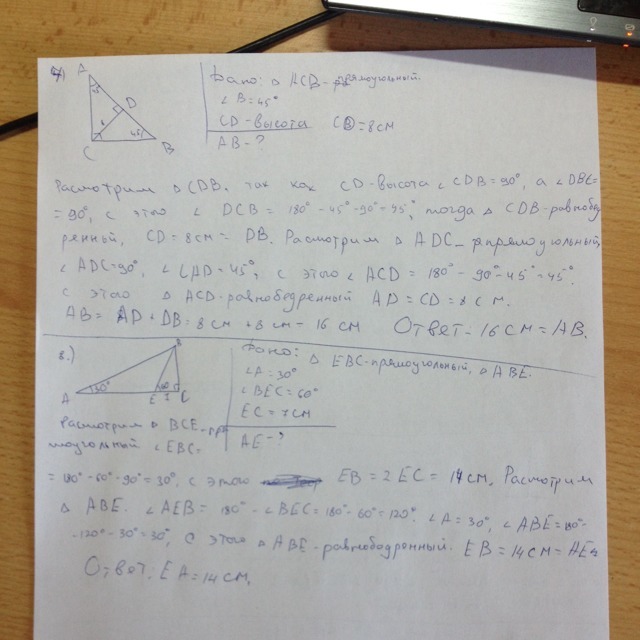 7)
A
45°
D
8
45°
C
B
Дано: △ ACB - прямоугольный.
∠ B = 45°
CD - высота CD = 8 см
AB - ?
Расмотрим △ CDB. так как CD - высота ∠ CDB = 90°, а ∠ DBC =
= 90°, с этого ∠ DCB = 180° - 45° - 90° = 45°, тогда △ CDB - равнобед
ренный, CD = 8 см = DB. Расмотрим △ ADC - прямоугольный,
∠ ADC = 90°, ∠ CAD = 45°, с этого ∠ ACD = 180° - 90° - 45° = 45°.
с этого △ ACD - равнобедренный AD = CD = 8 см.
AB = AD + DB = 8 см + 8 см = 16 см Ответ - 16 см = AB.
8.)
B
30°
60°
A
E 7 C
Дано: △ EBC - прямоугольный, △ ABE.
∠ A = 30°
∠ BEC = 60°
EC = 7 см
AE - ?
Расмотрим △ BCE - пря
моугольный ∠ EBC =
= 180° - 60° - 90° = 30°, с этого EB = 2 EC = 14 см. Расмотрим
△ ABE. ∠ AEB = 180° - ∠ BEC = 180° - 60° = 120°. ∠ A = 30°, ∠ ABE = 180° -
- 120° - 30° = 30°, с этого △ ABE - равнобедренный. EB = 14 см = AE
Ответ. EA = 14 см.